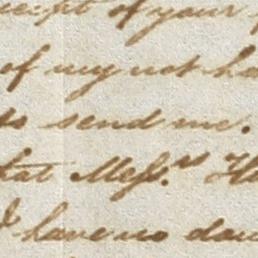 receipt of your
of my not ha
to send me.
that Mess.rs Ha
I have no dou